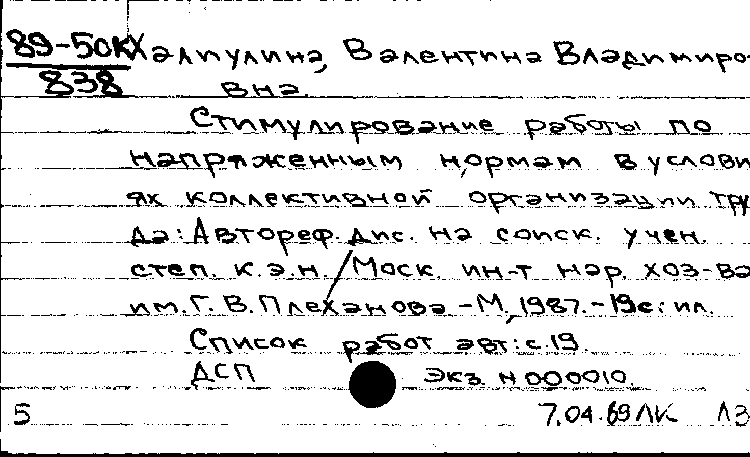 89-50К Халиулина, Валентина Владимиро-
838 вна.
Стимулирование работы по
напряженным нормам в услови
ях коллективной организации тру
да: Автореф. дис. на соиск. учен.
степ. к.э.н. / Моск. ин-т нар. хоз-ва
им. Г. В. Плеханова. - М, 1987. - 19 с: ил.
Список работ авт: с. 19.
ДСП Экз. N 000010.
5 7.04.89 ЛК ЛЗ